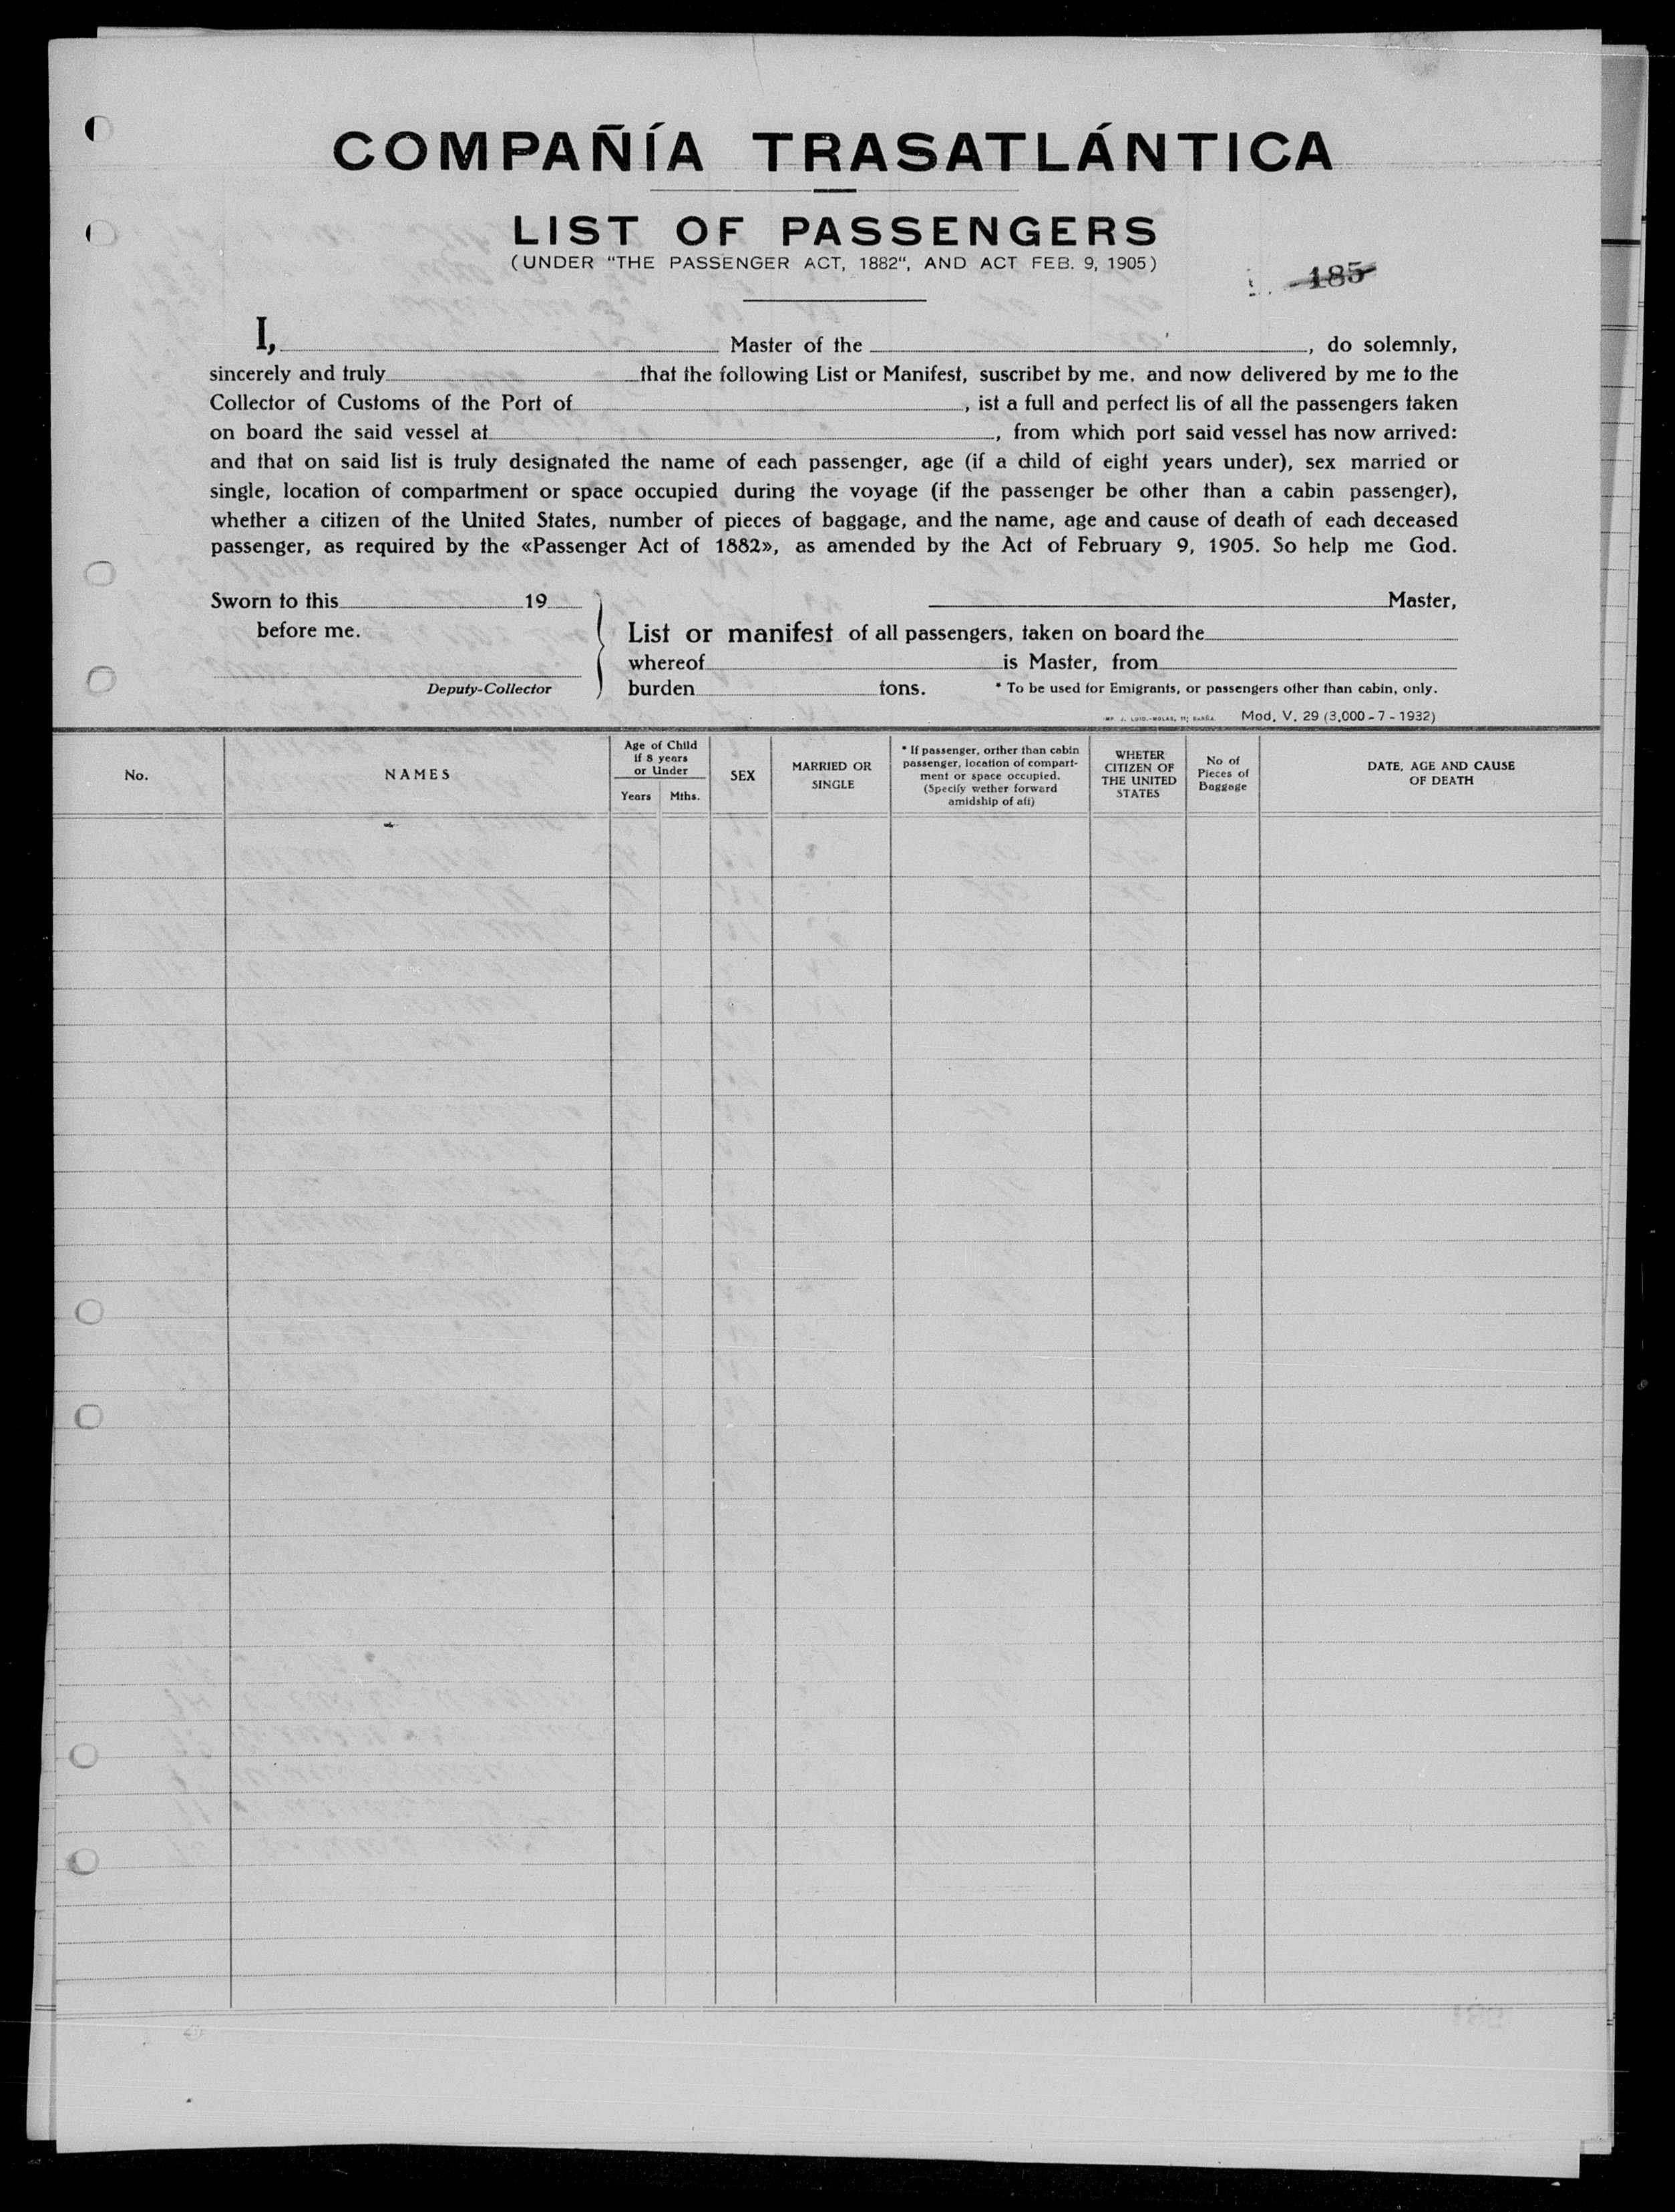 COMPAÑÍA TRASATLÁNTICA
LIST OF PASSENGERS
(UNDER "THE PASSENGER ACT, 1882", AND ACT FEB. 9, 1905)
185
I, Master of the , do solemnly,
sincerely and truly that the following List or Manifest, suscribet by me, and now delivered by me to the
Collector of Customs of the Port of , ist a full and perfect lis of all the passengers taken
on board the said vessel at , from which port said vessel has now arrived:
and that on said list is truly designated the name of each passenger, age (if a child of eight years under), sex married or
single, location of compartment or space occupied during the voyage (if the passenger be other than a cabin passenger),
whether a citizen of the United States, number of pieces of baggage, and the name, age and cause of death of each deceased
passenger, as required by the «Passenger Act of 1882», as amended by the Act of February 9, 1905. So help me God.
Sworn to this 19
before me.
Deputy-Collector
Master,
List or manifest of all passengers, taken on board the
whereof is Master, from
burden tons. * To be used for Emigrants, or passengers other than cabin, only.
Mod. V. 29 (3.000 - 7 - 1932)
No.
NAMES
Age of Child
if 8 years
or Under
Years Mths.
SEX
MARRIED OR
SINGLE
* If passenger, orther than cabin
passenger, location of compart-
ment or space occupied.
(Specify wether forward
amidship of aft)
WHETER
CITIZEN OF
THE UNITED
STATES
No of
Pieces of
Baggage
DATE, AGE AND CAUSE
OF DEATH